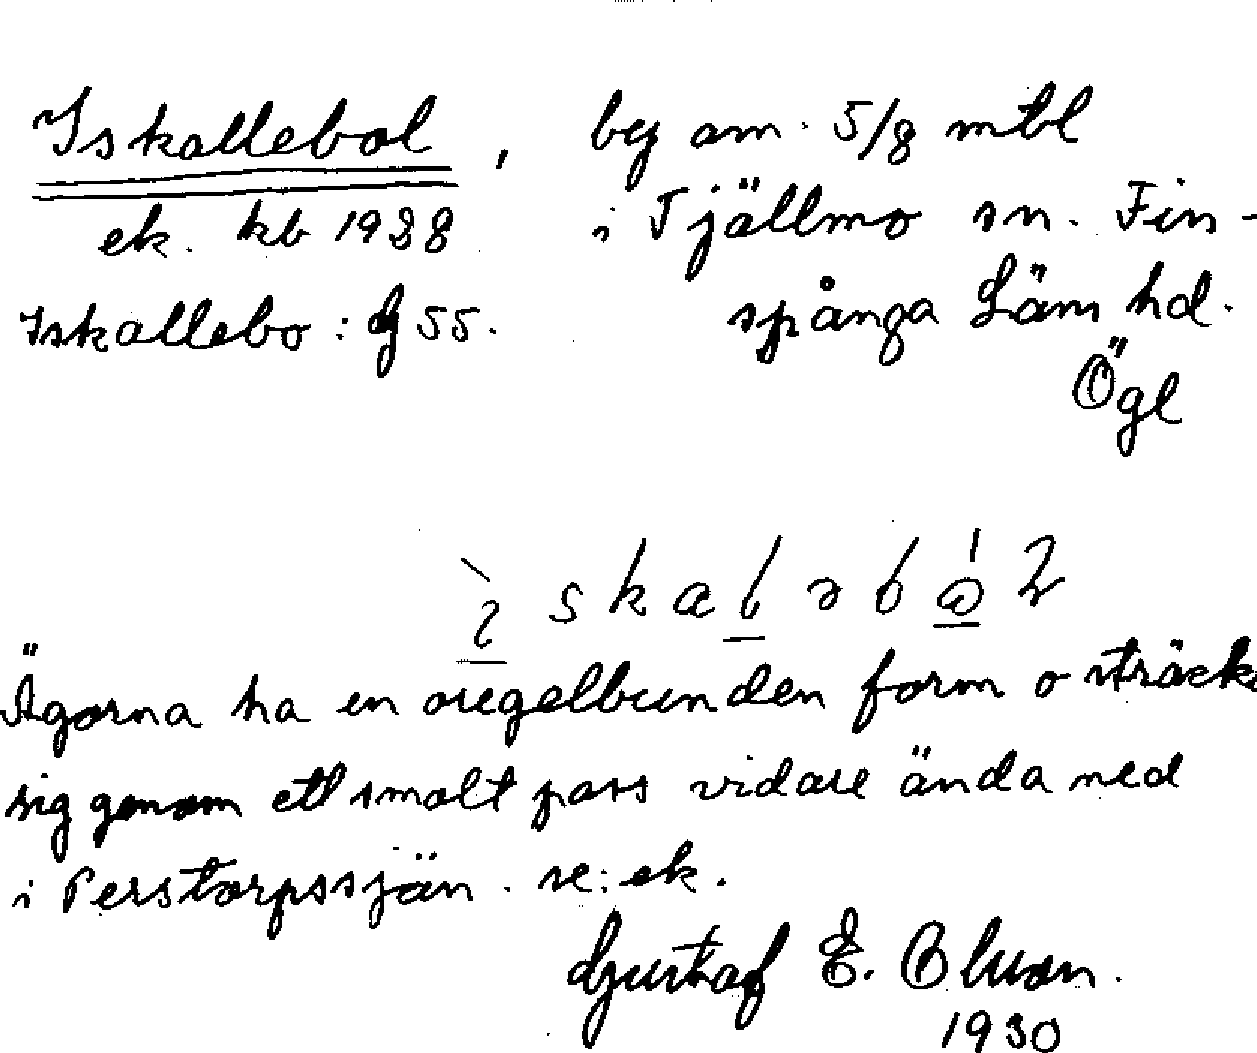 Iskallebol, by om 5/8 mtl
ek. kb 1928 i Tjällmo sn. Fin-
Iskallebo: Gg 55. spånga Läns hd.
Ögl
Ägorna ha en oregelbunden form o sträcka
sig genom ett smalt pass vidare ända ned
i Perstorpssjön. se: ek.
Gustaf E.
1930